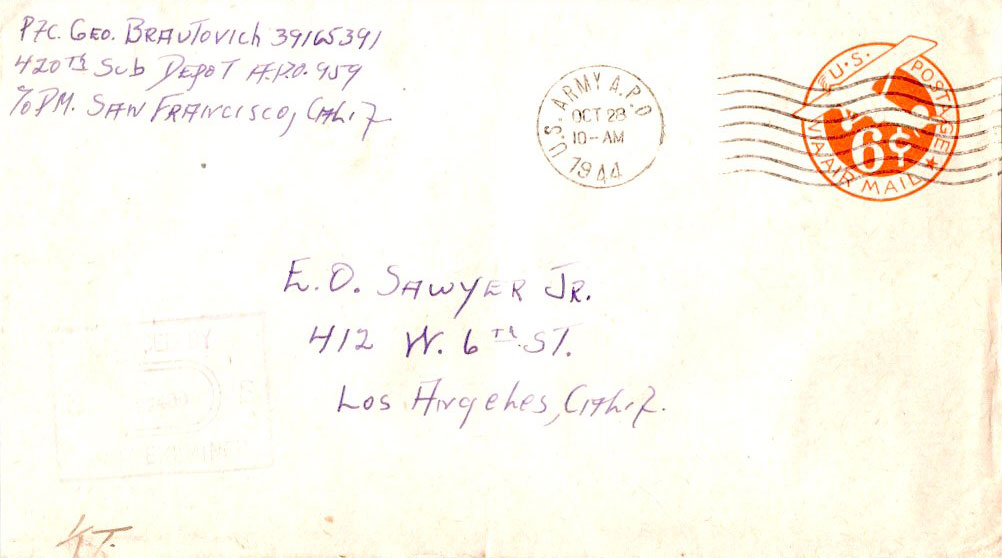 Pfc. Geo. Brautovich 39165391
420th Sub Depot A.P.O. 959
c/o P.M. San Francisco, Calif
U.S. ARMY A.P.O.
OCT 28
10-AM
1944
U.S. POSTAGE
6¢
VIA AIR MAIL
E. O. Sawyer Jr.
412 W. 6th St.
Los Angeles, Calif.